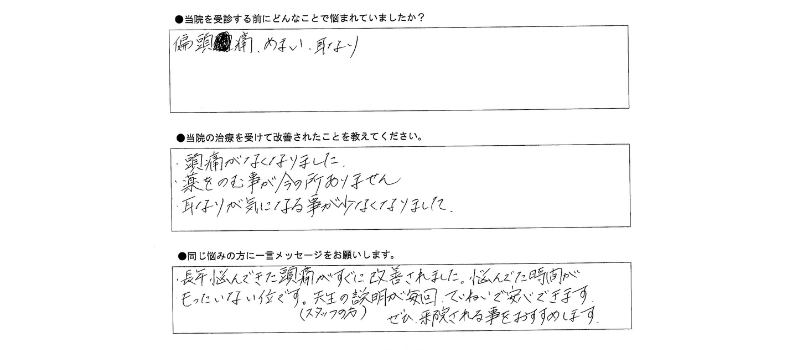 ●当院を受診する前にどんなことで悩まれていましたか?
偏頭痛、めまい、耳なり
●当院の治療を受けて改善されたことを教えてください。
・頭痛がなくなりました。
・薬をのむ事が今の所ありません
・耳なりが気になる事が少なくなりました。
●同じ悩みの方に一言メッセージをお願いします。
・長年悩んできた頭痛がすぐに改善されました。悩んでた時間が
もったいない位です。先生の説明が毎回、ていねいで安心できます。
(スタッフの方) ぜひ、来院される事をおすすめします。